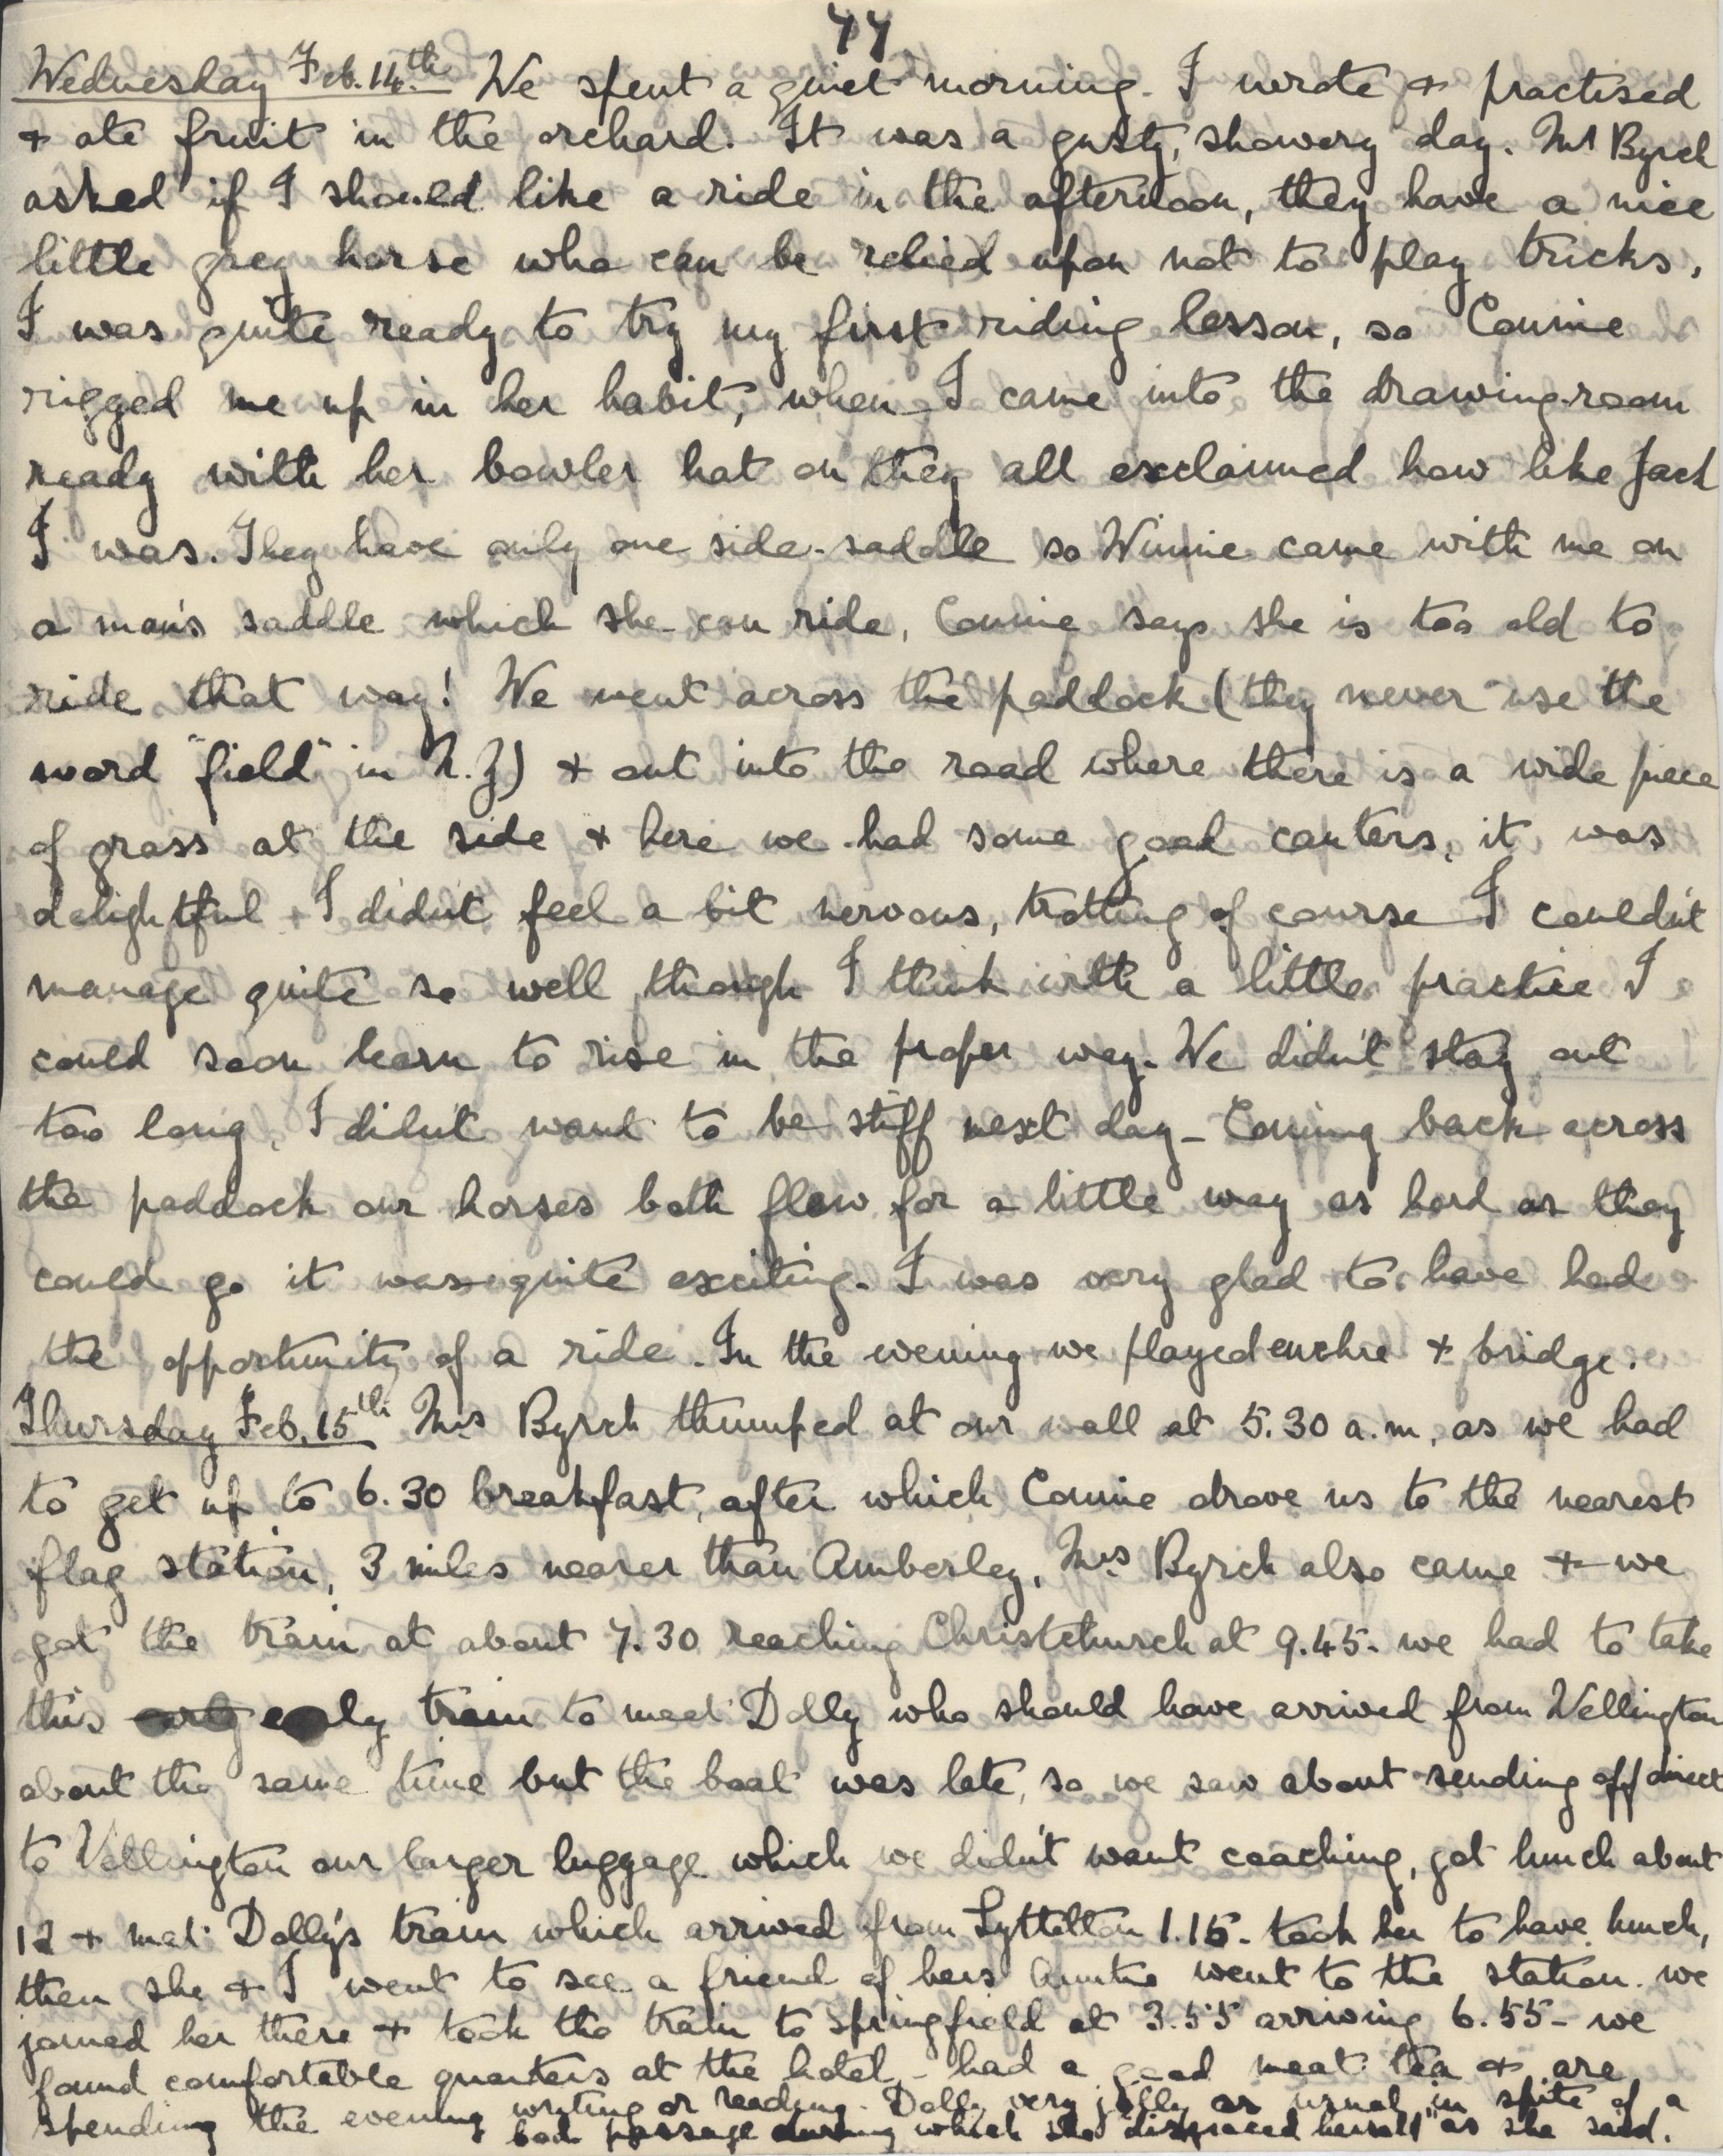 77
Wednesday Feb. 14th. We spent a quiet morning. I wrote + practised
+ ate fruit in the orchard. It was a gusty, showery day. Mr Byrch
asked if I should like a ride in the afternoon, they have a nice
little grey horse who can be relied upon not to play tricks,
I was quite ready to try my first riding lesson, so Connie
rigged me up in her habit, when I came into the drawing-room
ready with her bowler hat on they all exclaimed how like Jack
I was. They have only one side-saddle so Winnie came with me on
a man's saddle which she can ride, Connie says she is too old to
ride that way! We went across the paddock (they never use the
word "field" in N.Z) + out into the road where there is a wide piece
of grass at the side + here we had some good canters, it was
delightful + I didn't feel a bit nervous, trotting of course I couldn't
manage quite so well though I think with a little practice I
could soon learn to rise in the proper way. We didn't stay out
too long, I didn't want to be stiff next day - Coming back across
the paddock our horses both flew for a little way as hard as they
could go it was quite exciting. I was very glad to have had
the opportunity of a ride. In the evening we played euchre + bridge.
Thursday Feb. 15th Mrs Byrch thumped at our wall at 5.30 a.m. as we had
to get up to 6.30 breakfast, after which Connie drove us to the nearest
flag station, 3 miles nearer than Amberley, Mrs Byrch also came + we
got the train at about 7.30 reaching Christchurch at 9.45 - we had to take
this early early train to meet Dolly who should have arrived from Wellington
about the same time but the boat was late, so we saw about sending off direct
to Wellington our larger luggage which we didn't want coaching, got lunch about
12 + met Dolly's train which arrived from Lyttelton 1.15 - took her to have lunch,
then she + I went to see a friend of hers Auntie went to the station. we
joined her there + took the train to Springfield at 3.55 arriving 6.55 - we
found comfortable quarters at the hotel, - had a good meat tea + are
spending the evening writing or reading. Dolly very jolly as usual in spite of a
bad passage during which she "disgraced herself" as she said.